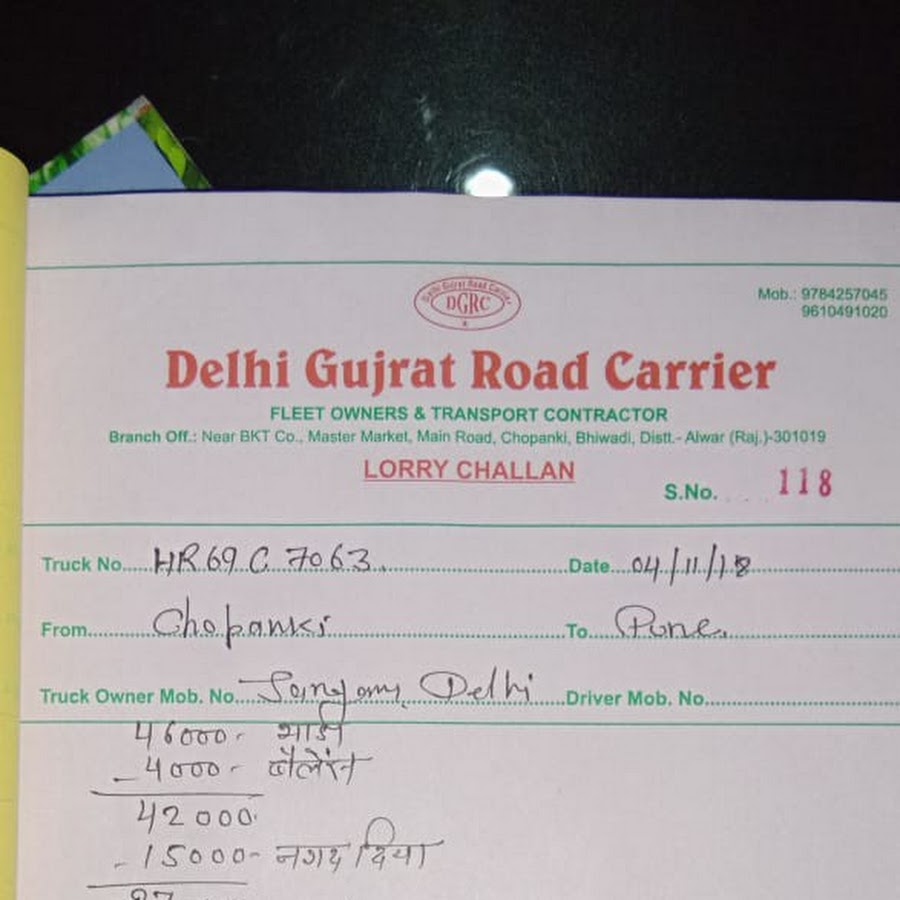 Delhi Gujrat Road Carrier
DGRC
Mob.: 9784257045
9610491020
Delhi Gujrat Road Carrier
FLEET OWNERS & TRANSPORT CONTRACTOR
Branch Off.: Near BKT Co., Master Market, Main Road, Chopanki, Bhiwadi, Distt.- Alwar (Raj.)-301019
LORRY CHALLAN
S.No. 118
Truck No. HR 69 C 7063. Date 04/11/18
From Chopanki To Pune.
Truck Owner Mob. No. Sangam, Delhi Driver Mob. No.
46000- भाड़ा
- 4000- बैलेंस
42000
- 15000- नगद दिया